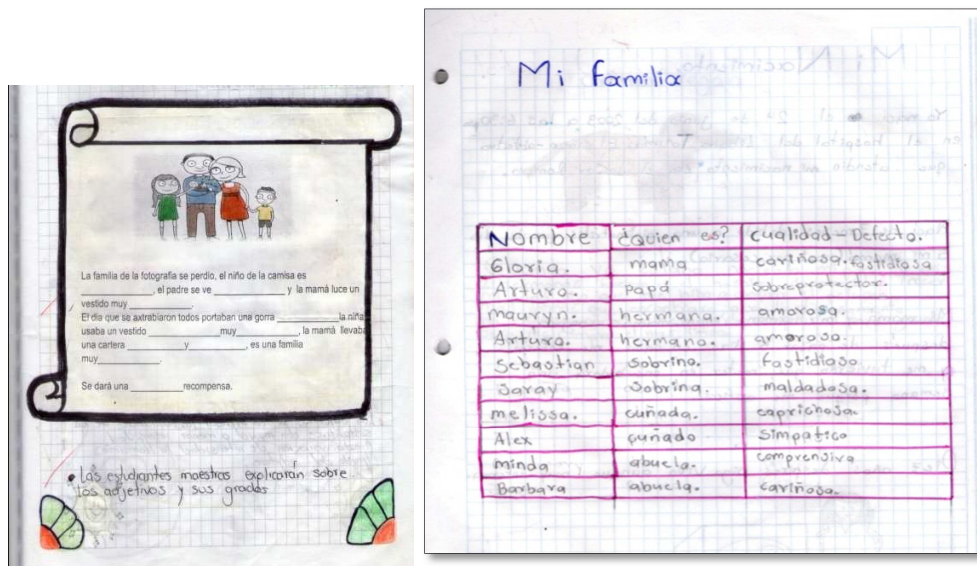 La familia de la fotografía se perdio, el niño de la camisa es
______________, el padre se ve ______________ y la mamá luce un
vestido muy ____________.
El día que se axtrabiaron todos portaban una gorra ____________la niña
usaba un vestido ______________muy____________, la mamá llevaba
una cartera ___________y___________, es una familia
muy____________.
Se dará una __________recompensa.
• Las estudiantes maestras explicarán sobre
los adjetivos y sus grados
Mi familia
Nombre ¿Quien es? cualidad-Defecto.
Gloria. mama cariñosa. fastidiosa
Arturo. papá sobreprotector.
mauryn. hermana. amorosa.
Arturo. hermano. amoroso.
Sebastian sobrino. fastidioso
Saray sobrina. maldadosa.
melissa. cuñada. caprichosa.
Alex cuñado simpatico
minda abuela. comprensiva
Barbara abuela. cariñosa.